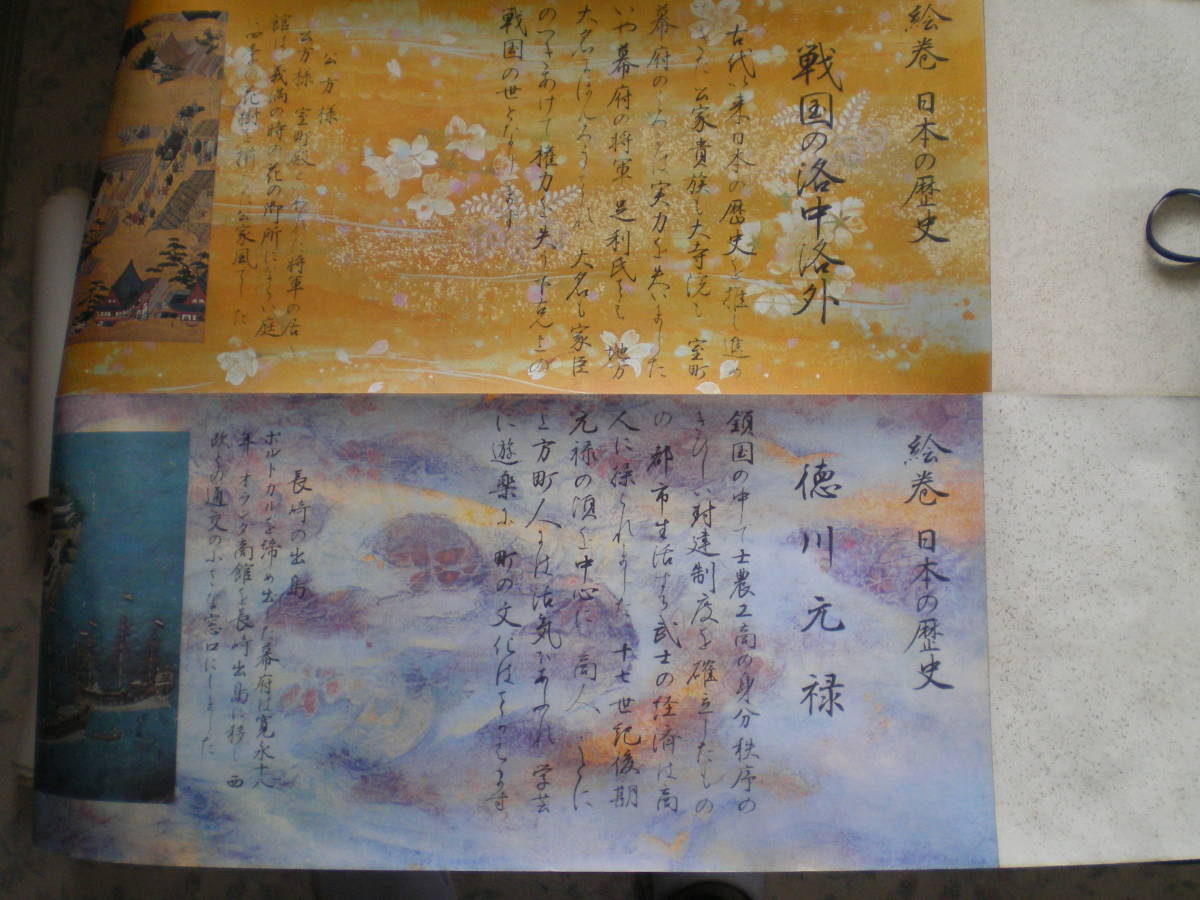 絵巻 日本の歴史
戦国の洛中洛外
古代以来日本の歴史を推し進め
てきた公家貴族も大寺院も 室町
幕府の は実力を失いました
いや幕府の将軍 足利氏すら 地方
大名にほんろうされ 大名も家臣
のつきあげで権力を失う下克上の
戦国の世となります
公方様
公方様 室町殿といわれた将軍の居
館は義満の時の花の御所にならい庭
に四季の花樹を揃えた公家風でした
絵巻 日本の歴史
徳川元禄
鎖国の中で士農工商の身分秩序の
きびしい封建制度を確立したもの
の 都市生活する武士の経済は商
人に操られました 十七世紀後期
元禄の頃を中心に 商人 ことに
上方町人には活気があふれ 学芸
に遊楽に 町の文化は
長崎の出島
ポルトガルを締め出した幕府は寛永十八
年 オランダ商館を長崎出島に移し 西
欧との通交の小さな窓口にしました